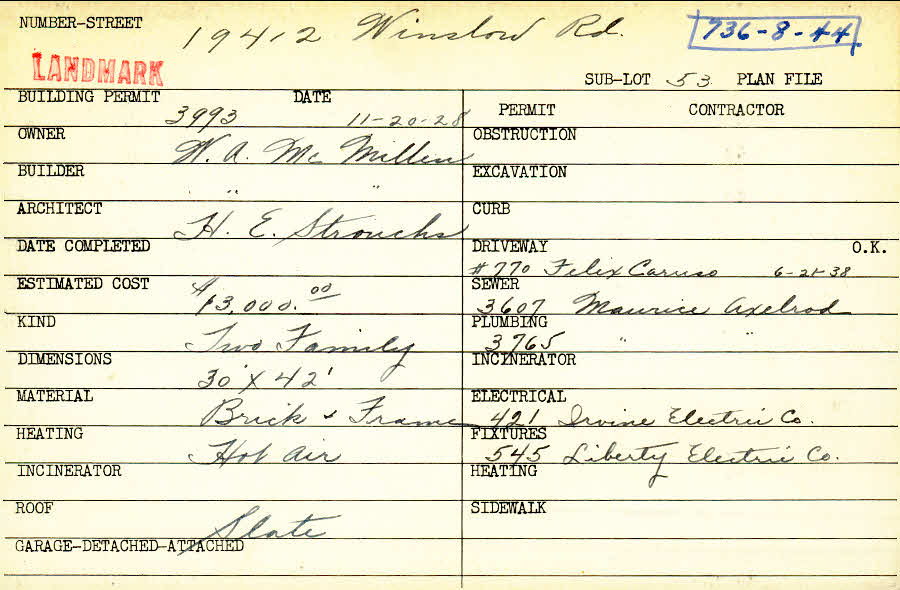 NUMBER-STREET 19412 Winslow Rd. 736-8-44
LANDMARK
SUB-LOT 53 PLAN FILE
BUILDING PERMIT 3993 DATE 11-20-28
PERMIT CONTRACTOR
OWNER W. A. Mc Millen
OBSTRUCTION
BUILDER " "
EXCAVATION
ARCHITECT H. E. Strouchs
CURB
DATE COMPLETED
DRIVEWAY O.K.
#770 Felix Caruso 6-21-38
ESTIMATED COST $13,000.00
SEWER
3607 Maurice Axelrod
KIND Two Family
PLUMBING
3765 " "
DIMENSIONS 30' X 42'
INCINERATOR
MATERIAL Brick & Frame
ELECTRICAL
421 Irvine Electric Co.
HEATING Hot Air
FIXTURES
545 Liberty Electric Co.
INCINERATOR
HEATING
ROOF Slate
SIDEWALK
GARAGE-DETACHED-ATTACHED